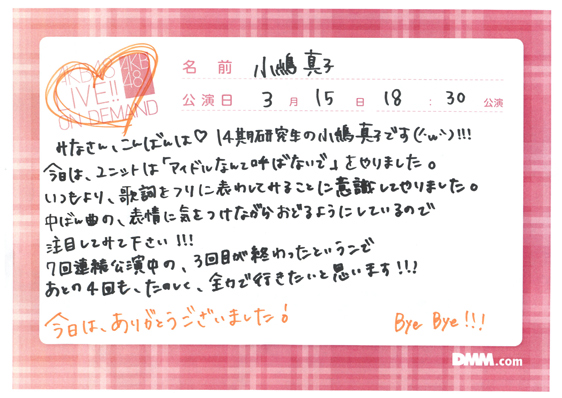 AKB48 AKB48
LIVE!!
ON DEMAND
名 前 小嶋 真子
公演日 3 月 15 日 18 : 30 公演
みなさん、こんばんは♡ 14期研究生の小嶋真子です(・ω・)!!!
今日は、ユニットは「アイドルなんて呼ばないで」をやりました。
いつもより、歌詞をフリに表わしてみることに意識してやりました。
中ばん曲の、表情に気をつけながらおどるようにしているので
注目してみて下さい!!!
7回連続公演中の、3回目が終わったというコで
あとの4回も、たのしく、全力で行きたいと思います!!!
今日は、ありがとうございました!
Bye Bye!!!
DMM.com